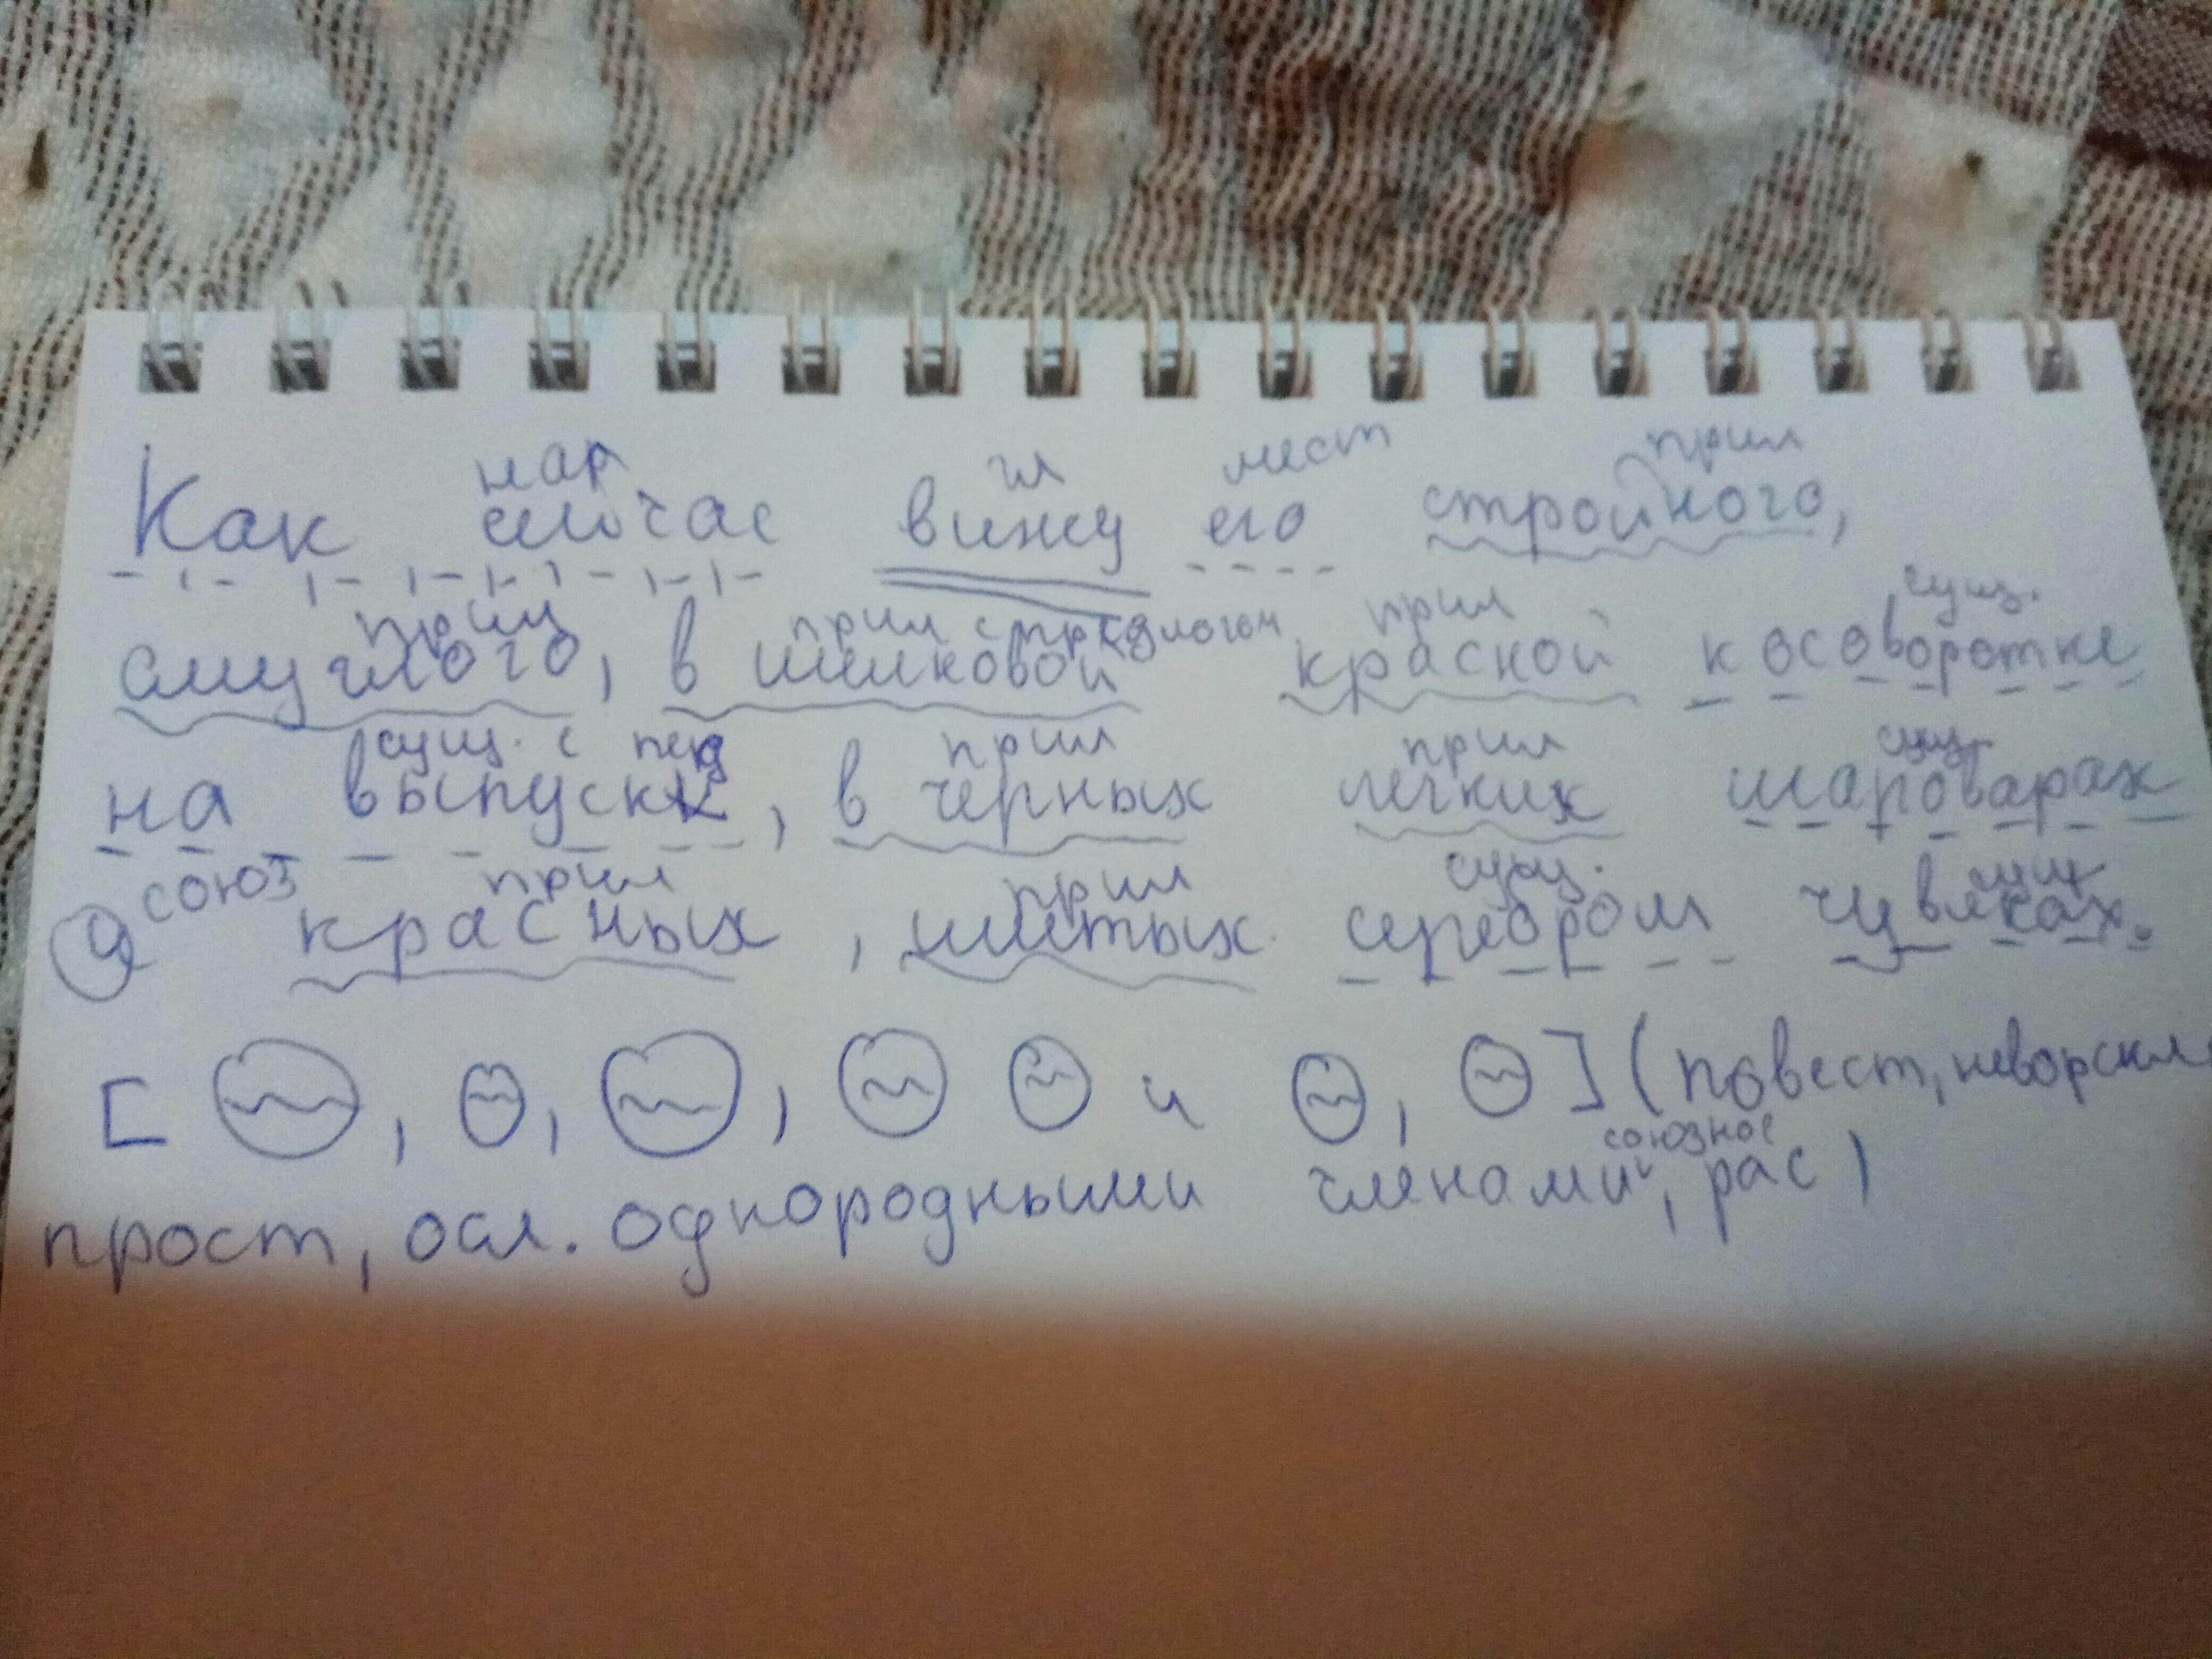 нар гл мест прил
Как сейчас вижу его стройного,
прил прил с предлогом прил сущ.
смуглого, в шелковой красной косоворотке
сущ. с пед прил прил сущ.
на выпуске, в черных легких шароварах
союз прил прил сущ. сущ
и красных, шитых серебром чувяках.
[ , , , и , ] (повест, невоскл
союзное
прост, осл. однородными членами, рас)